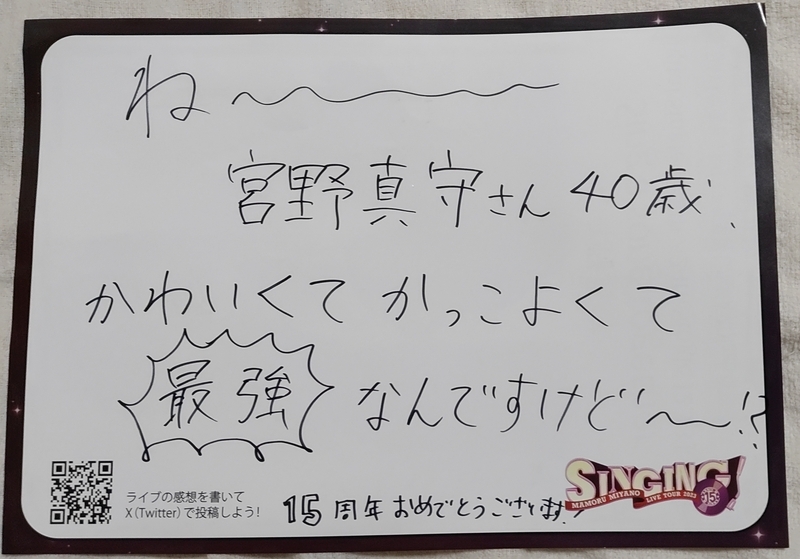 ね〜
宮野真守さん 40歳、
かわいくて かっこよくて
最強 なんですけど〜!?
ライブの感想を書いて
X(Twitter)で投稿しよう!
15周年おめでとうございます!
SINGING!
MAMORU MIYANO LIVE TOUR 2023
15th